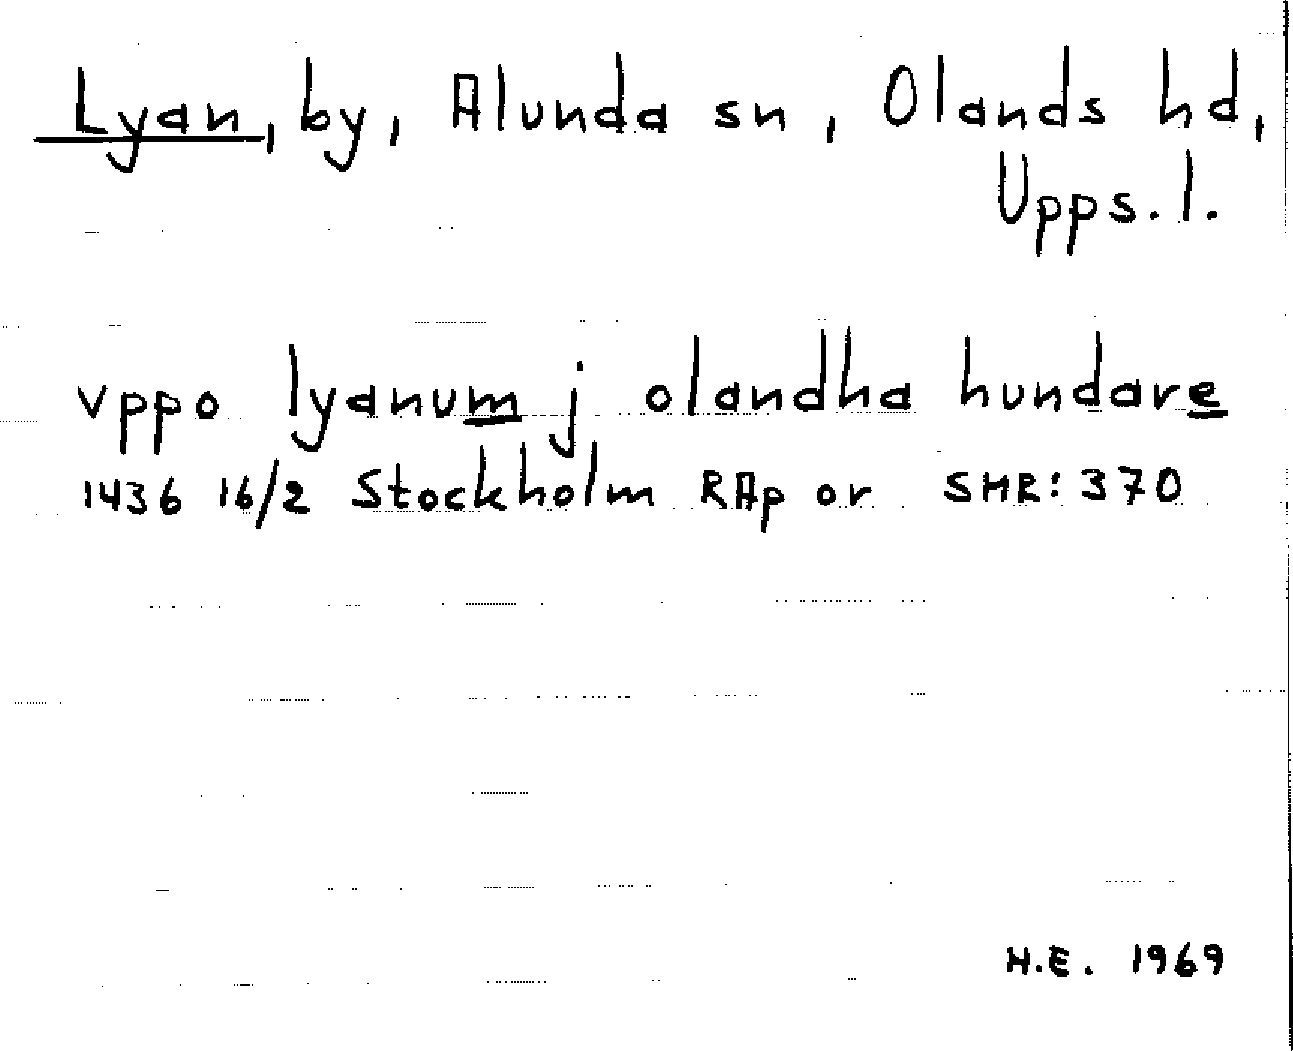 Lyan, by, Alunda sn, Olands hd,
Upps. l.
vppo lyanum j olandha hundare
1436 16/2 Stockholm RAp or SMR: 370
H.E. 1969